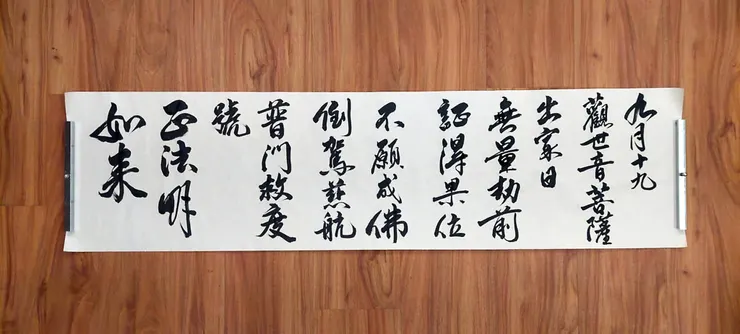 九月十九
觀世音菩薩
出家日
無量劫前
証得果位
不願成佛
倒駕慈航
普門救度
號
正法明
如来